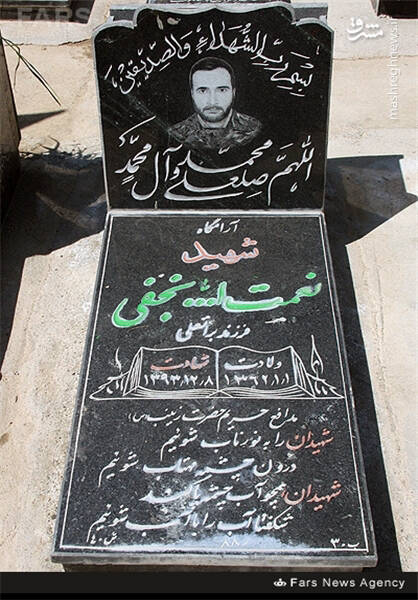 FARS
مشرق
mashreghnews.ir
بسم رب الشهداء والصدیقین
اللهم صل علی محمد و آل محمد
آرامگاه
شهید
نعمت ا... نجفی
فرزند براتعلی
ولادت شهادت
۱۳۶۲/۱/۱ ۱۳۹۳/۱۲/۸
مدافع حریم حضرت زینب (س)
شهیدان را به نور ناب شوئیم
درون چشمه مهتاب شوئیم
شهیدان همچو آب چشمه پاکند
شگفتا آب را با آب شوئیم
Fars News Agency